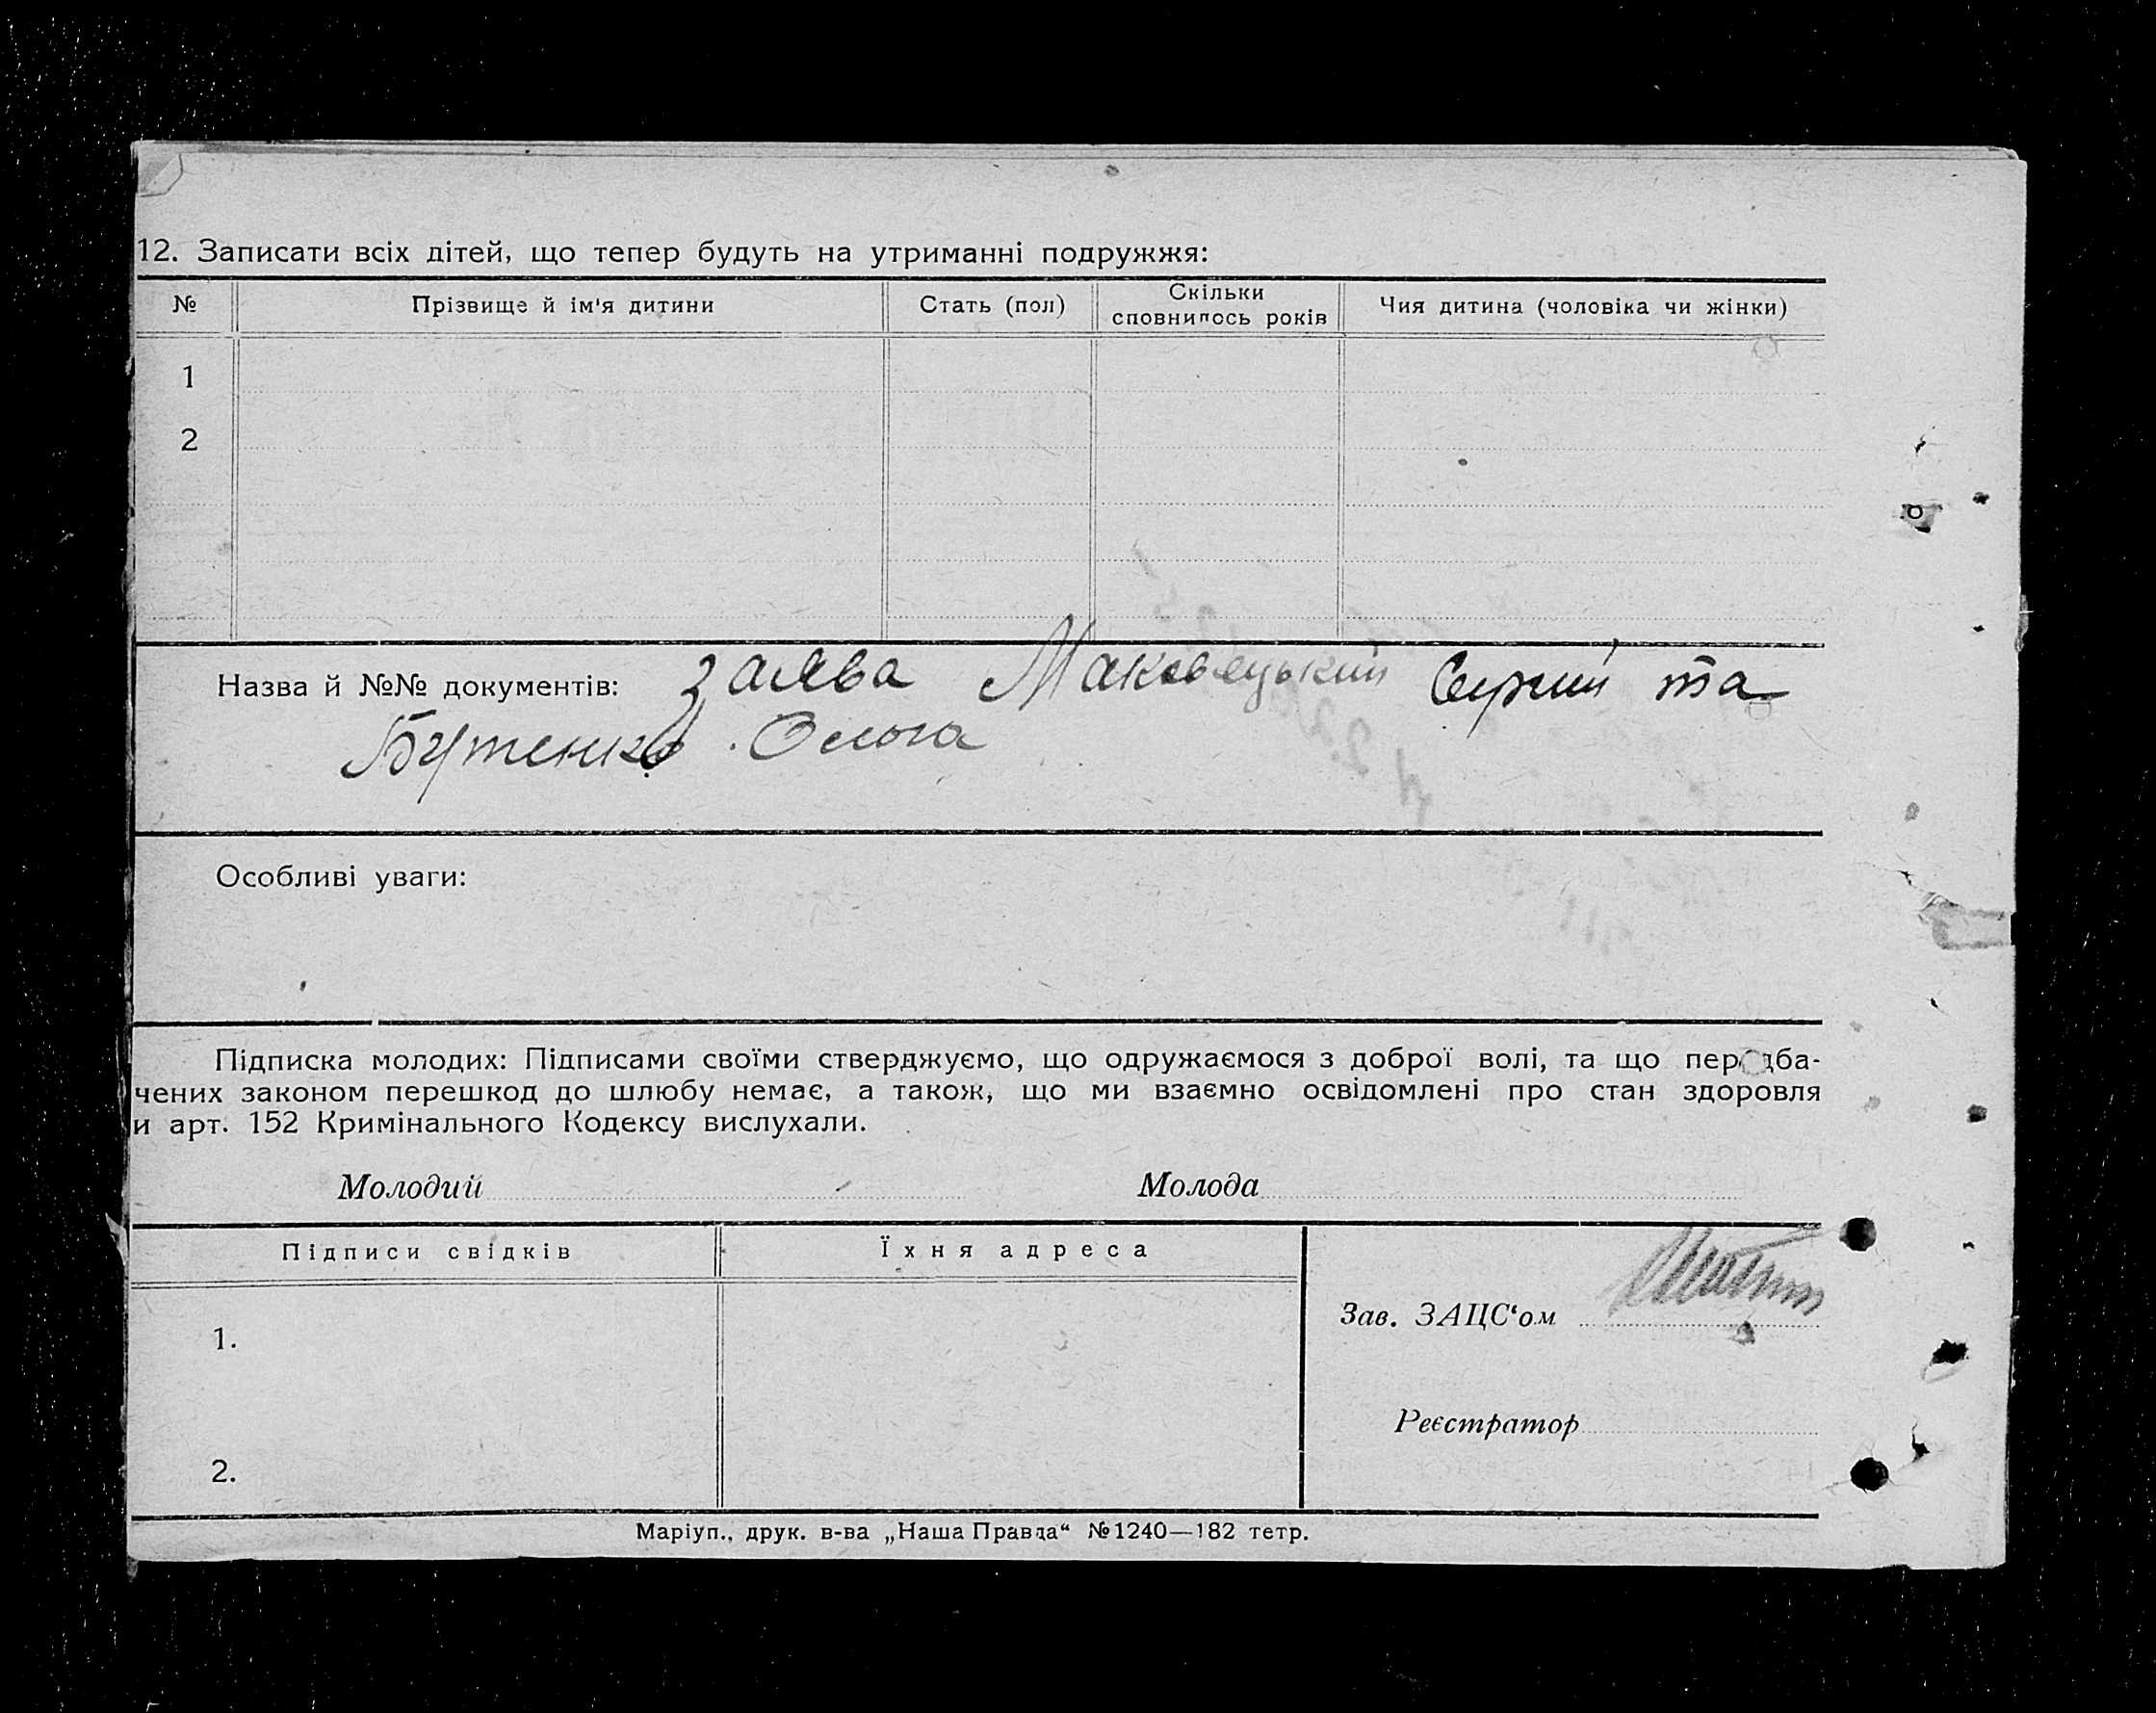 12. Записати всіх дітей, що тепер будуть на утриманні подружжя:
№ Прізвище й ім'я дитини Стать (пол) Скільки сповнилось років Чия дитина (чоловіка чи жінки)
1
2
Назва й №№ документів: заява Маковецький Сергий та
Бутенко Ольга
Особливі уваги:
Підписка молодих: Підписами своїми стверджуємо, що одружаємося з доброї волі, та що передба-
чених законом перешкод до шлюбу немає, а також, що ми взаємно освідомлені про стан здоровля
и арт. 152 Кримінального Кодексу вислухали.
Молодий Молода
Підписи свідків Їхня адреса
Зав. ЗАЦС‘ом
1.
Реєстратор
2.
Маріуп., друк. в-ва „Наша Правда“ №1240—182 тетр.